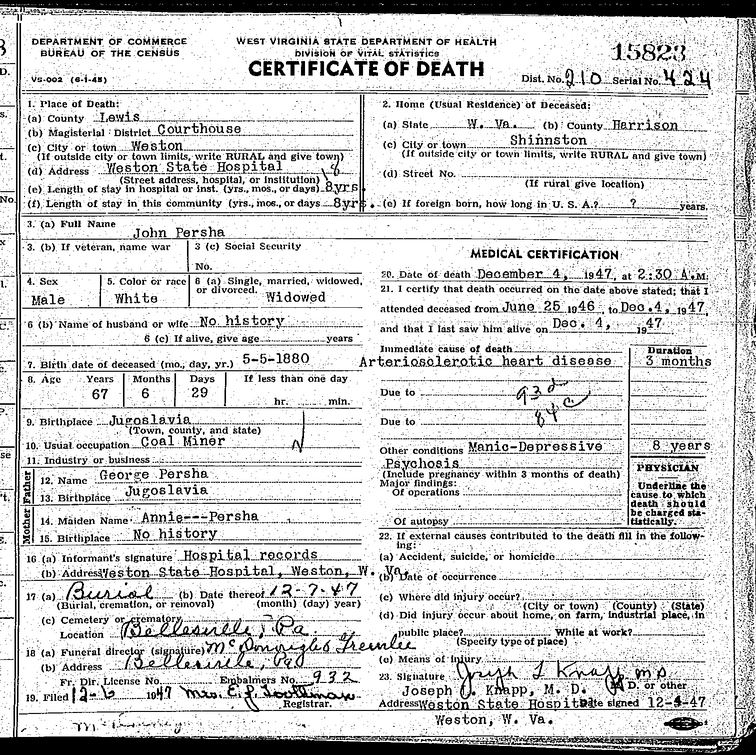 DEPARTMENT OF COMMERCE
BUREAU OF THE CENSUS
VS-002 (6-1-45)
WEST VIRGINIA STATE DEPARTMENT OF HEALTH
DIVISION OF VITAL STATISTICS
CERTIFICATE OF DEATH
15823
Dist. No. 210 Serial No. 424
1. Place of Death:
(a) County Lewis
(b) Magisterial District Courthouse
(c) City or town Weston
(If outside city or town limits, write RURAL and give town)
(d) Address Weston State Hospital
(Street address, hospital, or institution)
(e) Length of stay in hospital or inst. (yrs., mos., or days) 8yrs.
(f) Length of stay in this community (yrs., mos., or days 8yrs.
2. Home (Usual Residence) of Deceased:
(a) State W. Va. (b) County Harrison
(c) City or town Shinnston
(If outside city or town limits, write RURAL and give town)
(d) Street No.
(If rural give location)
(e) If foreign born, how long in U. S. A.? ? years.
3. (a) Full Name
John Persha
3. (b) If veteran, name war
3 (c) Social Security
No.
4. Sex
Male
5. Color or race
White
6 (a) Single, married, widowed,
or divorced.
Widowed
6 (b) Name of husband or wife No history
6 (c) If alive, give age years
7. Birth date of deceased (mo., day, yr.) 5-5-1880
8. Age Years Months Days If less than one day
67 6 29 hr. min.
9. Birthplace Jugoslavia
(Town, county, and state)
10. Usual occupation Coal Miner
11. Industry or business
Father
12. Name George Persha
13. Birthplace Jugoslavia
Mother
14. Maiden Name Annie---Persha
15. Birthplace No history
16 (a) Informant's signature Hospital records
(b) Address Weston State Hospital, Weston, W. Va.
17 (a) Burial (b) Date thereof 12-7-47
(Burial, cremation, or removal) (month) (day) (year)
(c) Cemetery or crematory
Location Bellesville, Pa
18 (a) Funeral director (signature)
(b) Address Bellesville, Pa
Fr. Dir. License No. Embalmers No. 932
19. Filed 12-6 1947 Mrs. E. J.
Registrar.
MEDICAL CERTIFICATION
20. Date of death December 4, 1947, at 2:30 A.M.
21. I certify that death occurred on the date above stated; that I
attended deceased from June 25 1946 to Dec. 4, 1947,
and that I last saw him alive on Dec. 4, 1947
Immediate cause of death
Arteriosclerotic heart disease
Duration
3 months
Due to 93d
Due to 84c
Other conditions Manic-Depressive 8 years
Psychosis
(Include pregnancy within 3 months of death)
Major findings:
Of operations
Of autopsy
PHYSICIAN
Underline the
cause to which
death should
be charged sta-
tistically.
22. If external causes contributed to the death fill in the follow-
ing:
(a) Accident, suicide, or homicide
(b) Date of occurrence
(c) Where did injury occur?
(City or town) (County) (State)
(d) Did injury occur about home, on farm, industrial place, in
public place? While at work?
(Specify type of place)
(e) Means of injury
23. Signature Joseph L Knapp M D
Joseph L. Knapp, M. D. M. D. or other
Address Weston State Hospital Date signed 12-4-47
Weston, W. Va.